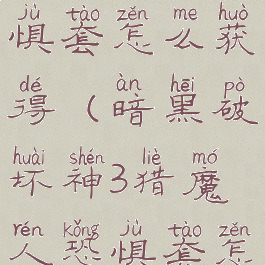 jù tào zěn me huò
惧套怎么获
dé àn hēi pò
得(暗黑破
huài shén liè mó
坏神3猎魔
rén kǒng jù tào zěn
人恐惧套怎